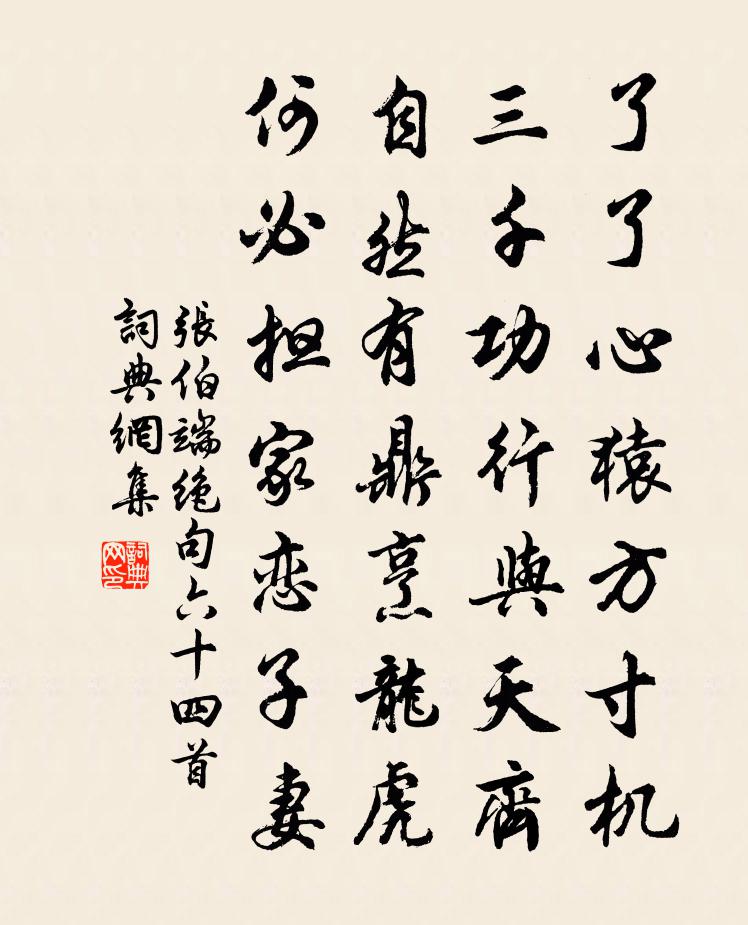 了了心猿方寸机
三千功行與天齊
自然有鼎烹龍虎
何必担家恋子妻
張伯端絶句六十四首
詞典網集
詞典网印